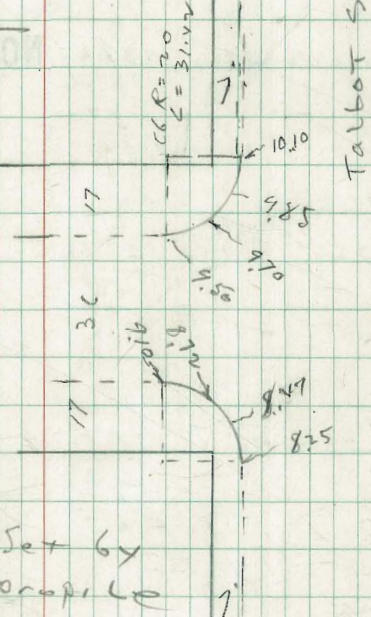 Talbot S
C6 R=20
C = 31.42
7.
10.10
9.85
9.70
9.50
17
36
17
9.01
8.72
8.47
8.25
Set by
7.